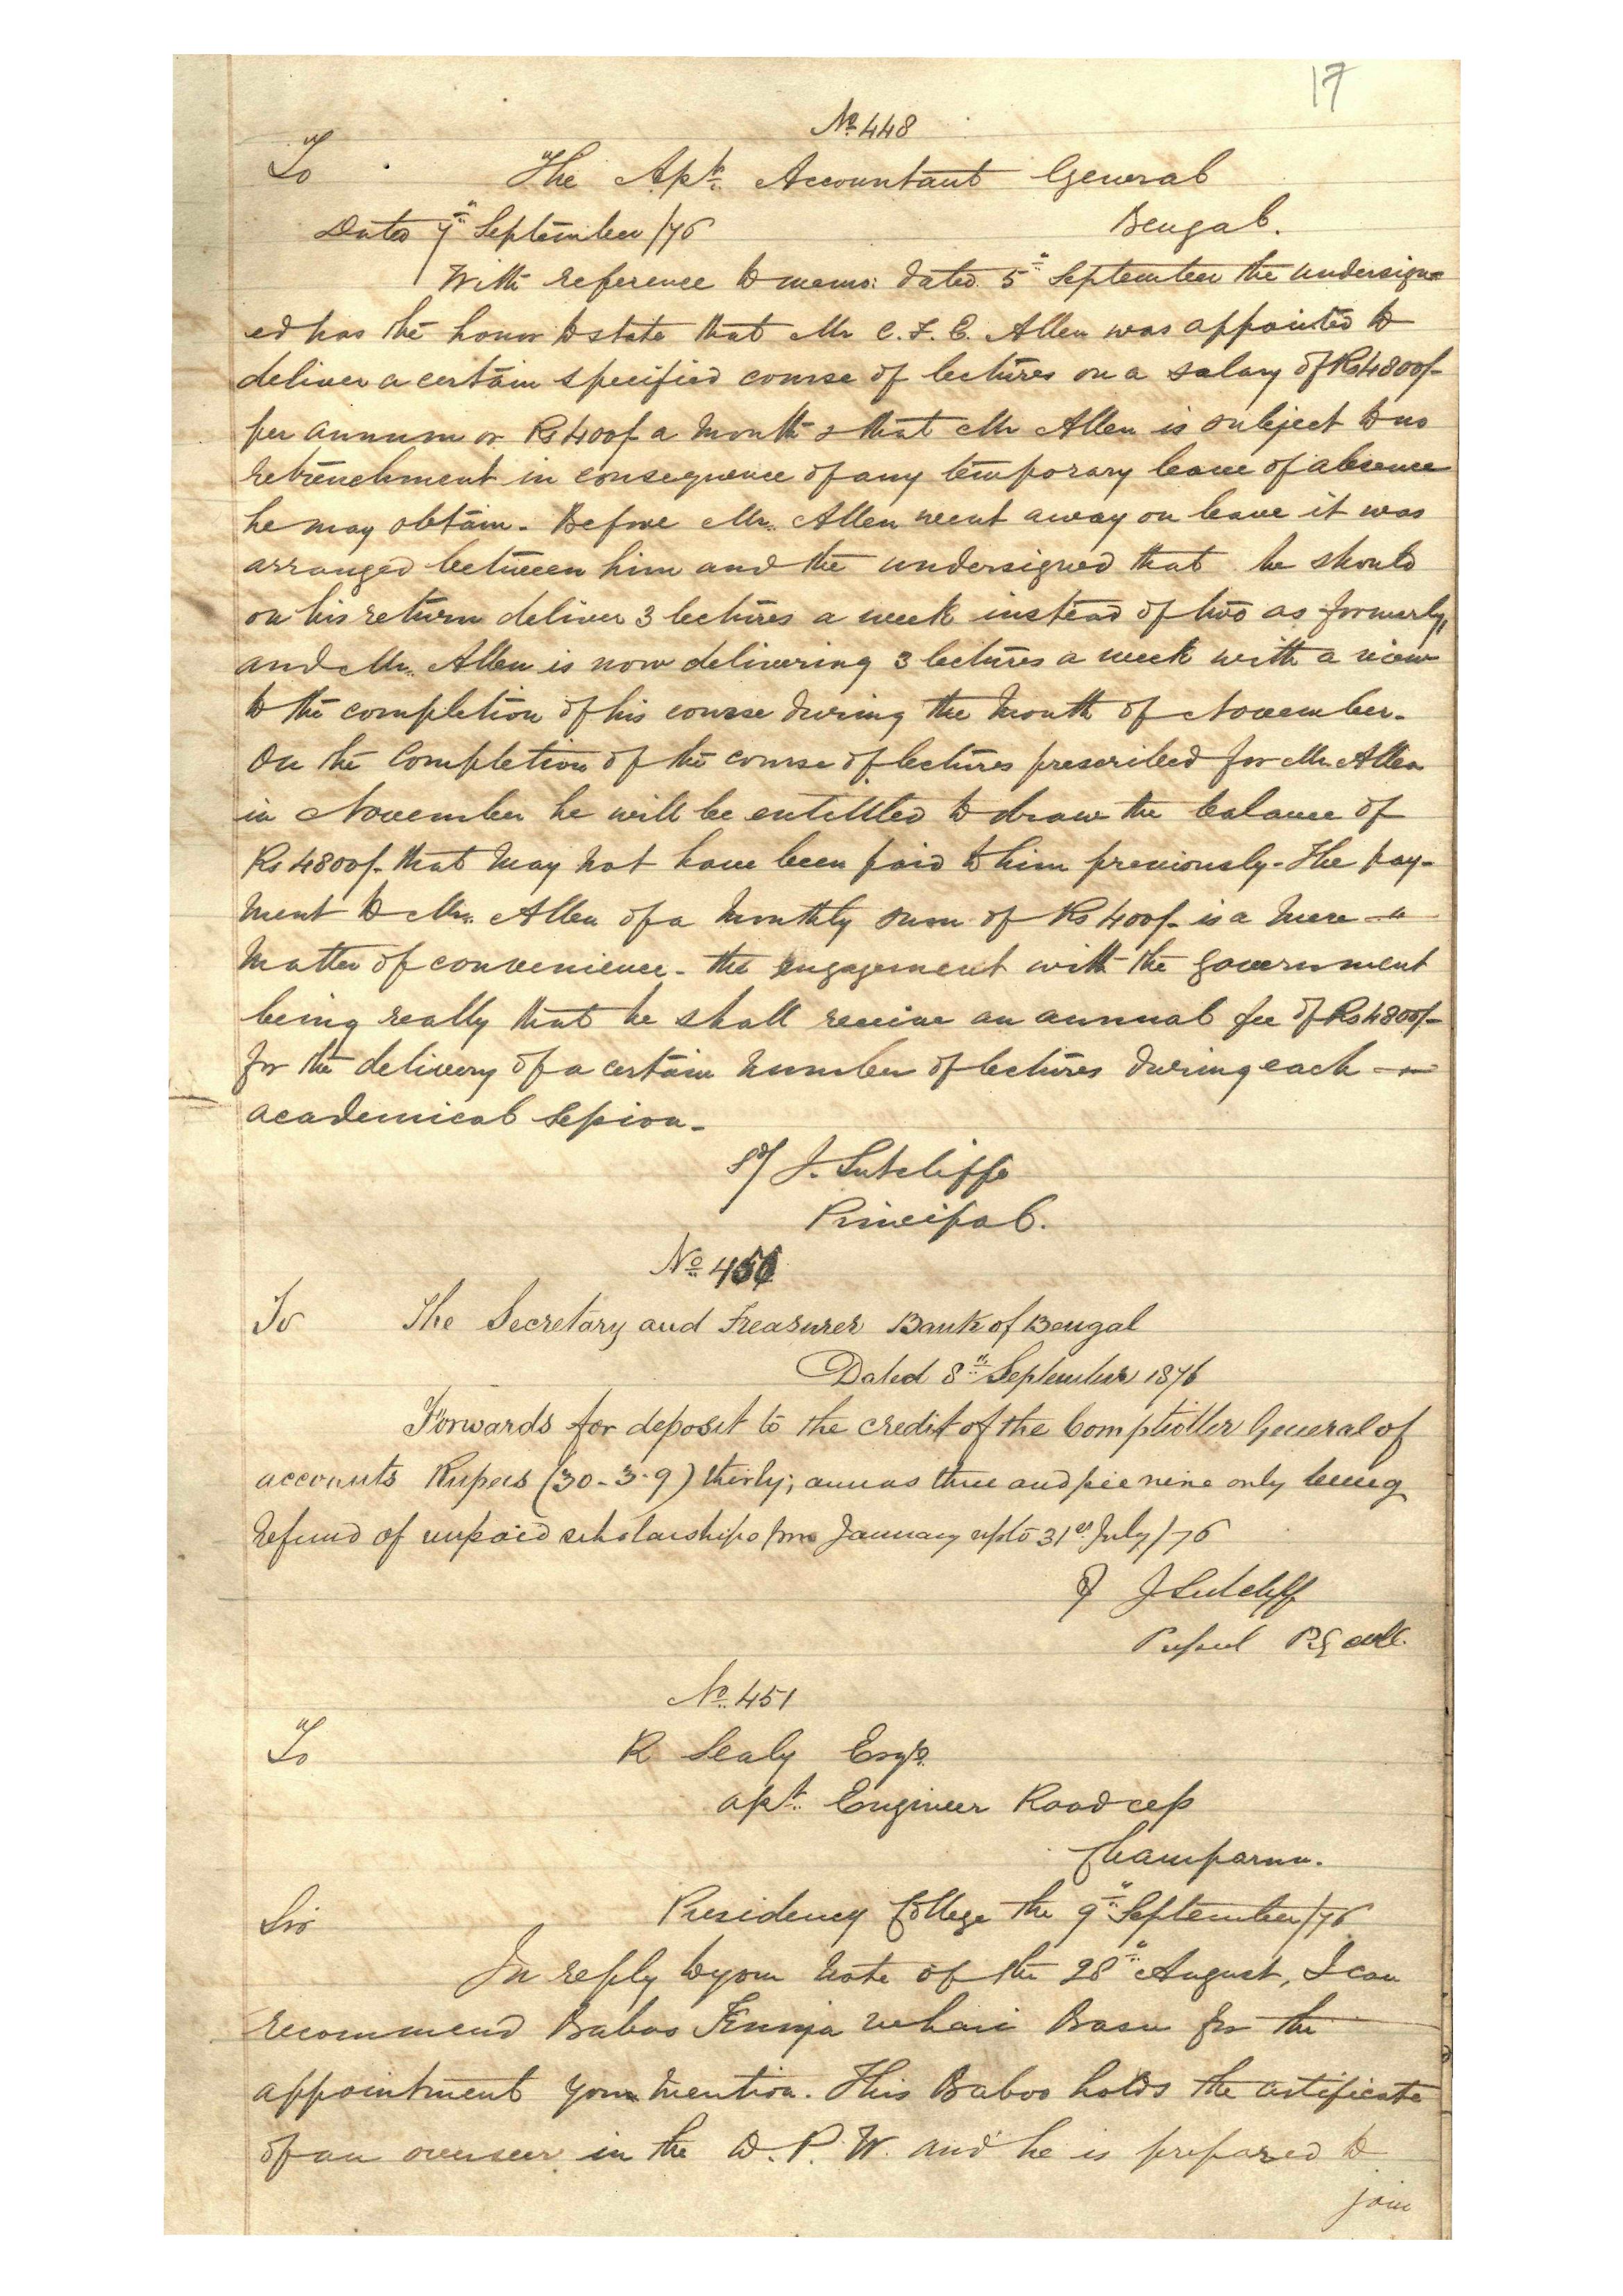 17
No. 448
To The Asst. Accountant General
Dated 7th September/76 Bengal.
With reference to memo: dated 5th September the undersign-
ed has the honor to state that Mr C. F. E. Allen was appointed to
deliver a certain specified course of lectures on a salary of Rs 4800/-
per annum or Rs 400/- a month & that Mr Allen is subject to no
retrenchment in consequence of any temporary leave of absence
he may obtain. Before Mr. Allen went away on leave it was
arranged between him and the undersigned that he should
on his return deliver 3 lectures a week instead of two as formerly,
and Mr. Allen is now delivering 3 lectures a week with a view
to the completion of his course during the month of November.
On the completion of the course of lectures prescribed for Mr. Allen
in November he will be entitled to draw the balance of
Rs 4800/- that may not have been paid to him previously. The pay-
ment to Mr. Allen of a monthly sum of Rs 400/- is a mere
matter of convenience - the engagement with the government
being really that he shall receive an annual fee of Rs 4800/-
for the delivery of a certain number of lectures during each
academical session.
Sd/ J. Sutcliffe
Principal.
No. 450
To The Secretary and Treasurer Bank of Bengal
Dated 8th September 1876
Forwards for deposit to the credit of the Comptroller General of
accounts Rupees (30-3-9) thirty; annas three and pie nine only being
refund of unpaid scholarships from January upto 31st July/76
J Sutcliff
No. 451
To R Sealy Esqr.
Asst. Engineer Road cess
Champarun.
Sir Presidency College the 9th September/76
In reply to your note of the 28th August, I can
recommend Baboo Behari Basu for the
appointment you mention. This Baboo holds the certificate
of an overseer in the D. P. W. and he is prepared to
join